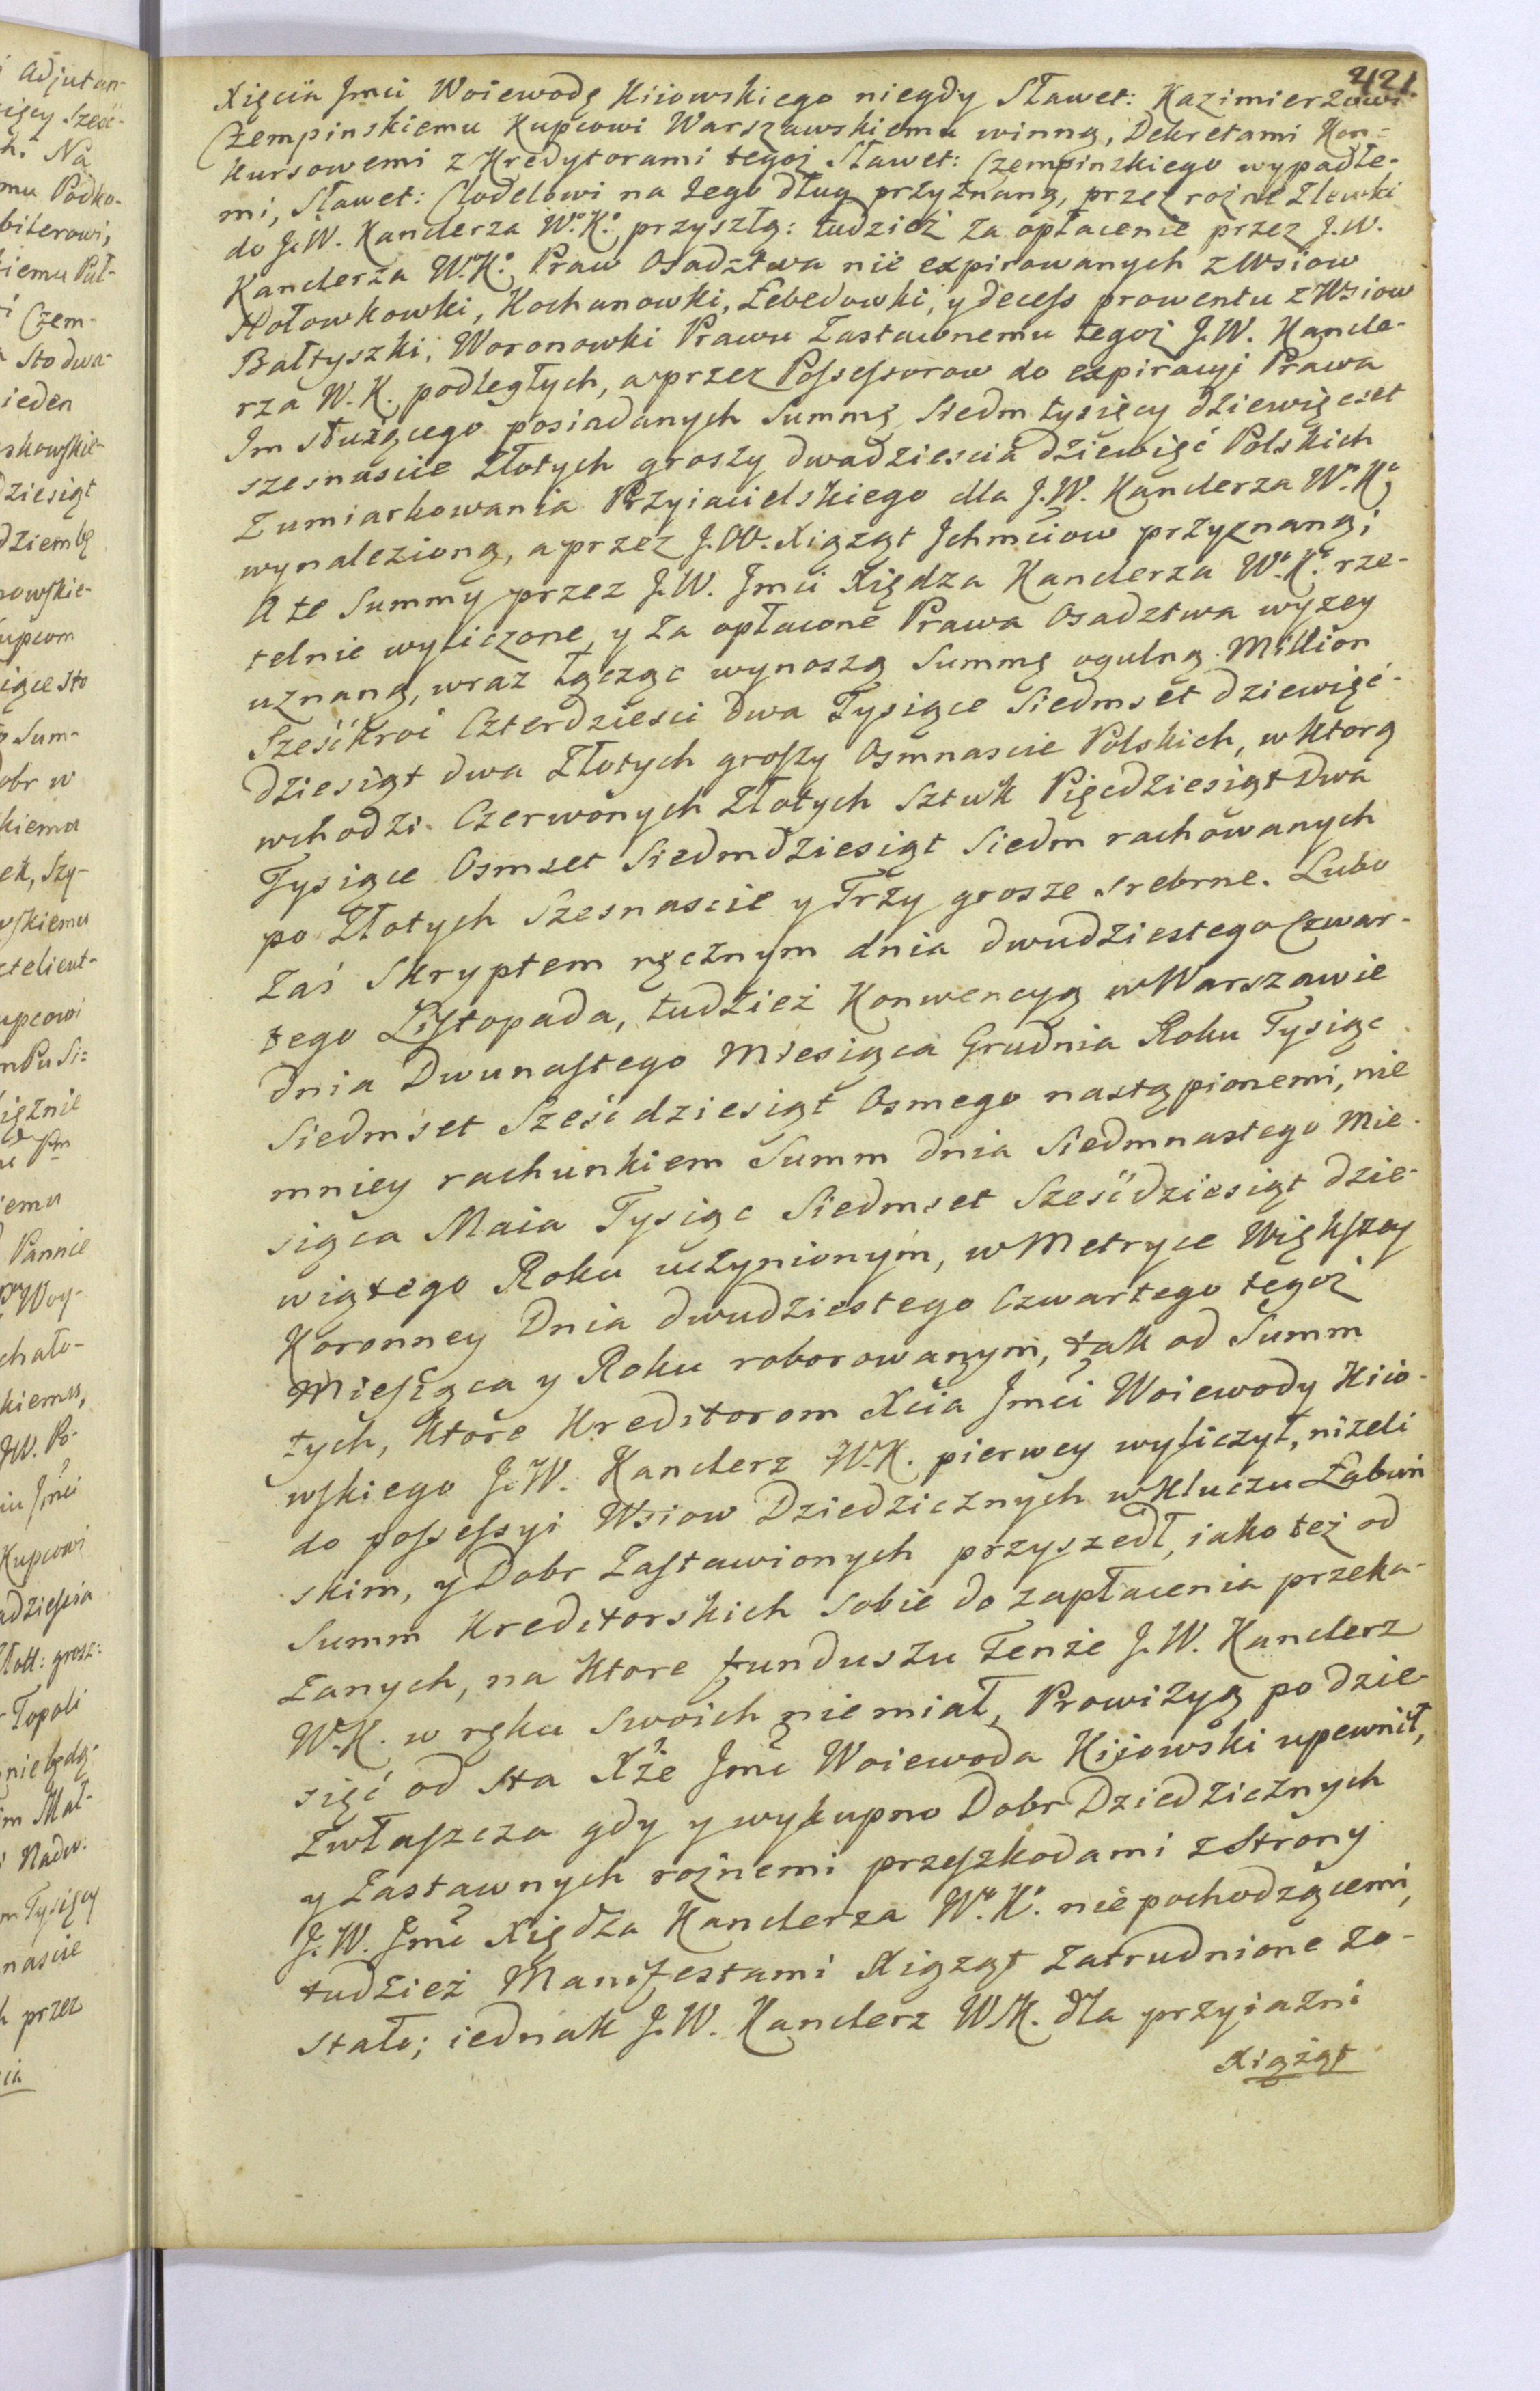 421
Xięcia Jmci Woiewodę Kiiowskiego niegdy Sławet: Kazimierzowi
Czempinskiemu Kupcowi Warszawskiemu winną, Dekretami Kon=
kursowemi z Kredytorami tegoż Sławet: Czempinskiego wypadłe-
mi, Sławet: Clodelowi na Jego dług przyznaną, przez rożne Zlewki
do J.W. Kanclerza W.K. przyszłą: tudzież za opłacenie przez J.W.
Kanclerza W.K. Praw Osadztwa nie expirowanych z Wsiow
Hołowkowki, Kochanowki, Łebedowki, y decess prowentu z Wsiow
Bałtyszki, Woronowki Prawu Zastawnemu tegoż J.W. Kancle-
rza W.K. podległych, a przez Possessorow do expiracyi Prawa
Im służącego posiadanych Summę Siedm tysięcy dziewięcset
szesnascie Złotych groszy dwadziescia dziewięć Polskich
Z umiarkowania Przyiacielskiego dla J.W. Kanclerza W.K.
wynalezioną, a przez J.OO. Xiążąt Jchmciow przyznaną;
A te Summy przez J.W. Jmci Xiędza Kanclerza W.K. rze-
telnie wyliczone, y za opłacone Prawa Osadztwa wyżey
uznaną, wraz łącząc wynoszą Summę ogulną Million
Sześćkroć Czterdziesci dwa Tysiące Siedmset dziewięć-
dziesiąt dwa Złotych groszy Osmnascie Polskich, w ktorą
wchodzi Czerwonych Złotych Sztuk Pięcdziesiąt Dwa
Tysiące Osmset Siedmdziesiąt Siedm rachowanych
po Złotych Szesnascie y Trzy grosze srebrne. Lubo
Zaś Skryptem ręcznym dnia dwudziestego Czwar-
tego Listopada, tudzież Konwencyą w Warszawie
dnia Dwunastego Miesiąca Grudnia Roku Tysiąc
Siedmset Sześćdziesiąt Osmego nastąpionemi, nie
mniey rachunkiem Summ dnia Siedmnastego Mie-
siąca Maia Tysiąc Siedmset Sześćdziesiąt dzie-
wiątego Roku uczynionym, w Metryce Większey
Koronney Dnia dwudziestego Czwartego tegoż
Miesiąca y Roku roborowanym, tak od Summ
tych, ktore Kreditorom Xcia Jmci Woiewody Kiio-
wskiego J.W. Kanclerz W.K. pierwey wyliczył, niżeli
do possessyi Wsiow Dziedzicznych w Kluczu Łabuń
skim, y Dobr Zastawionych przyszedł, iako też od
Summ Kreditorskich sobie do zapłacenia przeka-
zanych, na ktore funduszu Tenże J.W. Kanclerz
W.K. w ręku swoich nie miał, Prowizyą po dzie-
sięć od sta Xże Jmć Woiewoda Kiiowski upewnił,
Zwłaszcza gdy y wykupno Dobr Dziedzicznych
y Zastawnych rożnemi przeszkodami z strony
J.W. Jmć Xiędza Kanclerza W.K. nie pochodzącemi,
tudzież Manifestami Xiążąt zatrudnione zo-
stało; iednak J.W. Kanclerz W.K. dla przyiazni
Xiążąt